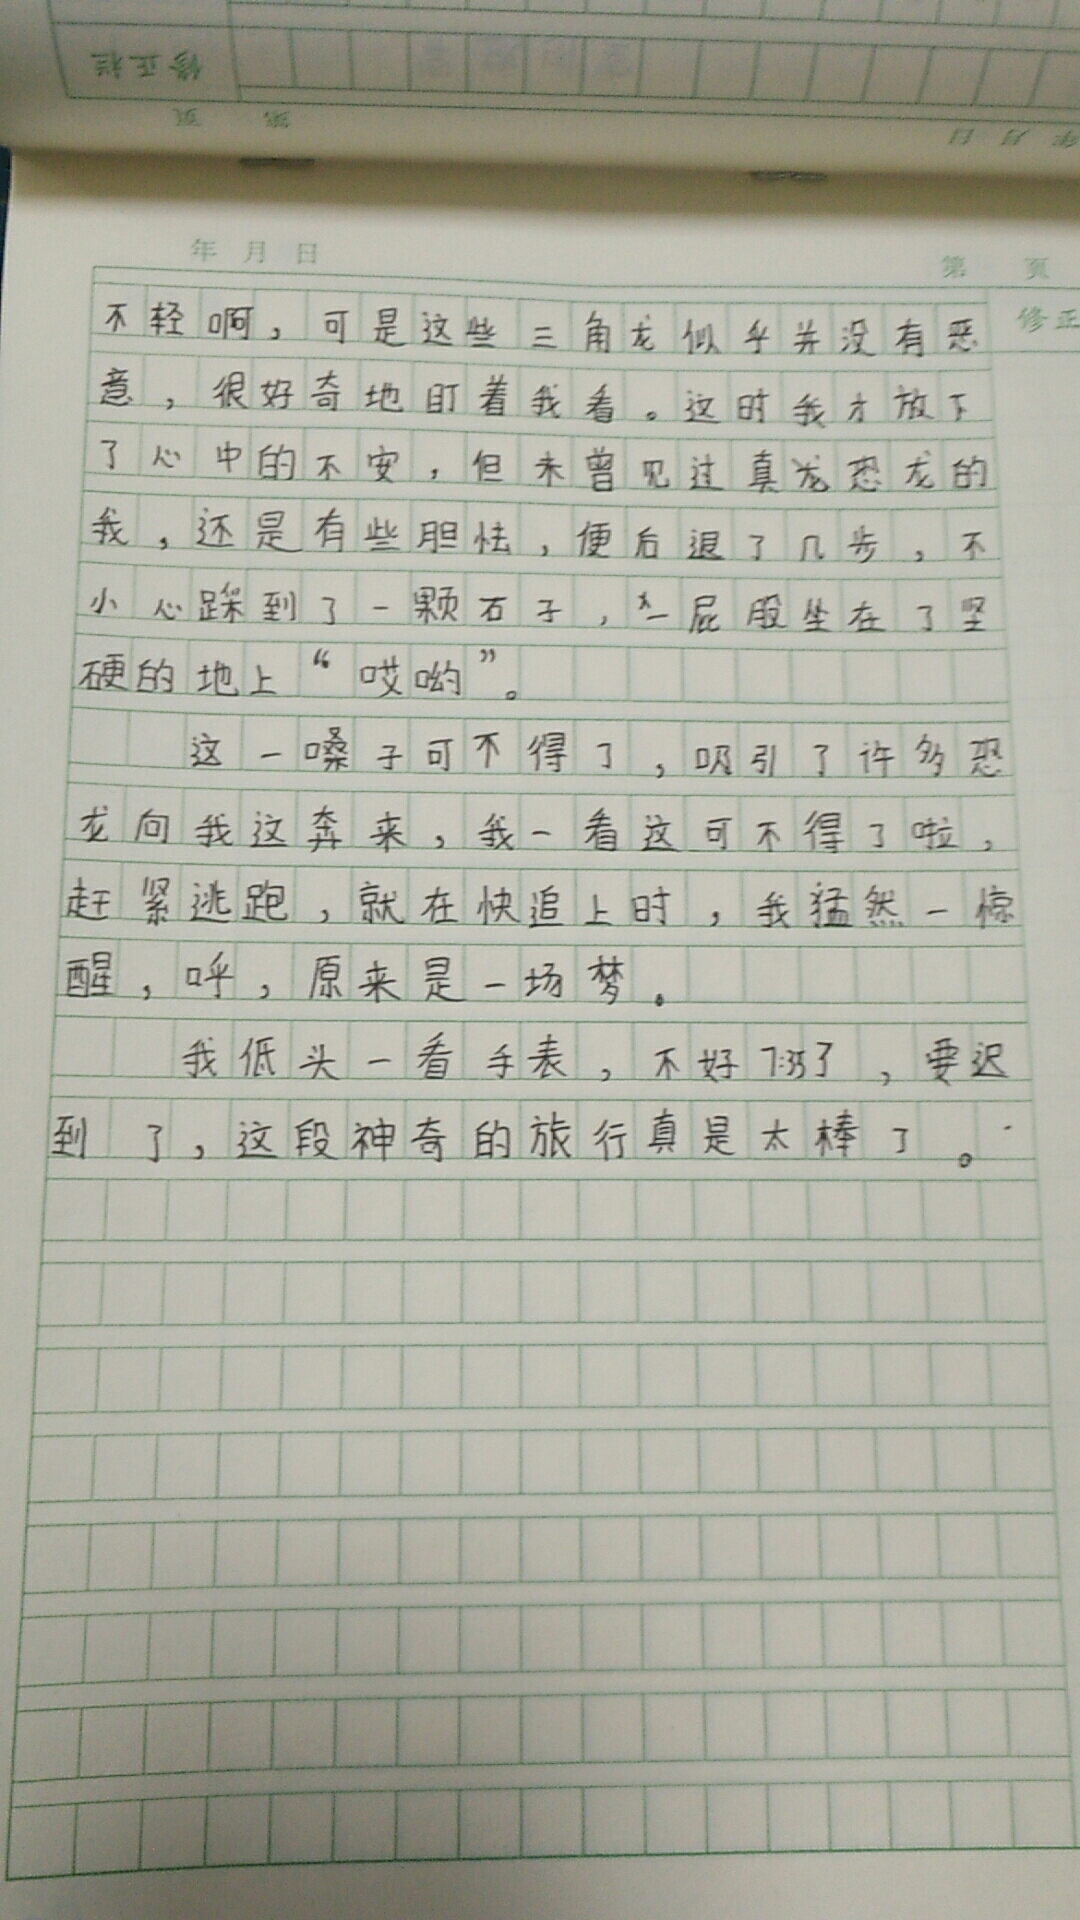 修正栏
第 页
年 月 日
年 月 日
第 页
修正
不轻啊，可是这些三角龙似乎并没有恶
意，很好奇地盯着我看。这时我才放下
了心中的不安，但未曾见过真龙恐龙的
我，还是有些胆怯，便后退了几步，不
小心踩到了一颗石子，一屁股坐在了坚
硬的地上“哎呦”。
这一嗓子可不得了，吸引了许多恐
龙向我这奔来，我一看这可不得了啦，
赶紧逃跑，就在快追上时，我猛然一惊
醒，呼，原来是一场梦。
我低头一看手表，不好7:35了，要迟
到了，这段神奇的旅行真是太棒了。